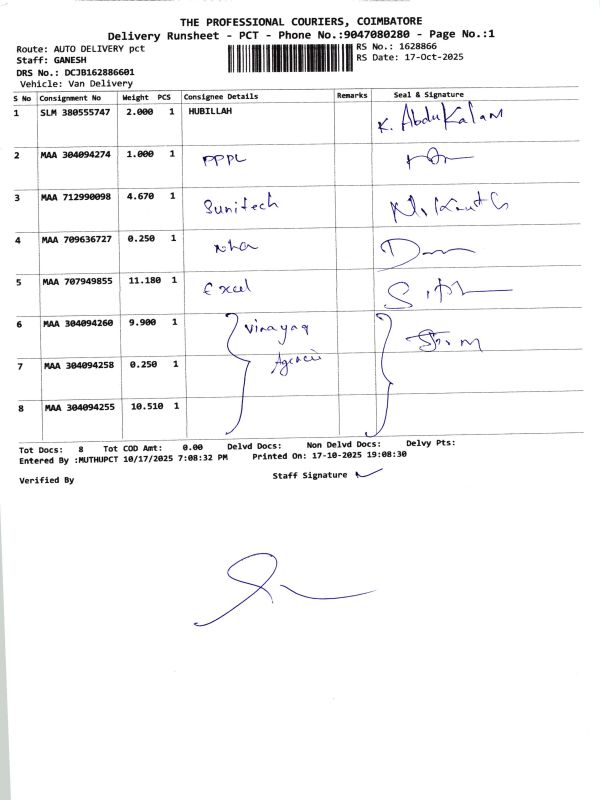 THE PROFESSIONAL COURIERS, COIMBATORE
Delivery Runsheet - PCT - Phone No.:9047080280 - Page No.:1
Route: AUTO DELIVERY pct RS No.: 1628866
Staff: GANESH RS Date: 17-Oct-2025
DRS No.: DCJB162886601
Vehicle: Van Delivery
S No Consignment No Weight PCS Consignee Details Remarks Seal & Signature
1 SLM 380555747 2.000 1 HUBILLAH K. Abdul Kalam
2 MAA 304094274 1.000 1 PPPL
3 MAA 712990098 4.670 1 Sunitech
4 MAA 709636727 0.250 1
5 MAA 707949855 11.180 1 Excel
6 MAA 304094260 9.900 1 Vinayaq
7 MAA 304094258 0.250 1 Agencie
8 MAA 304094255 10.510 1
Tot Docs: 8 Tot COD Amt: 0.00 Delvd Docs: Non Delvd Docs: Delvy Pts:
Entered By :MUTHUPCT 10/17/2025 7:08:32 PM Printed On: 17-10-2025 19:08:30
Verified By Staff Signature